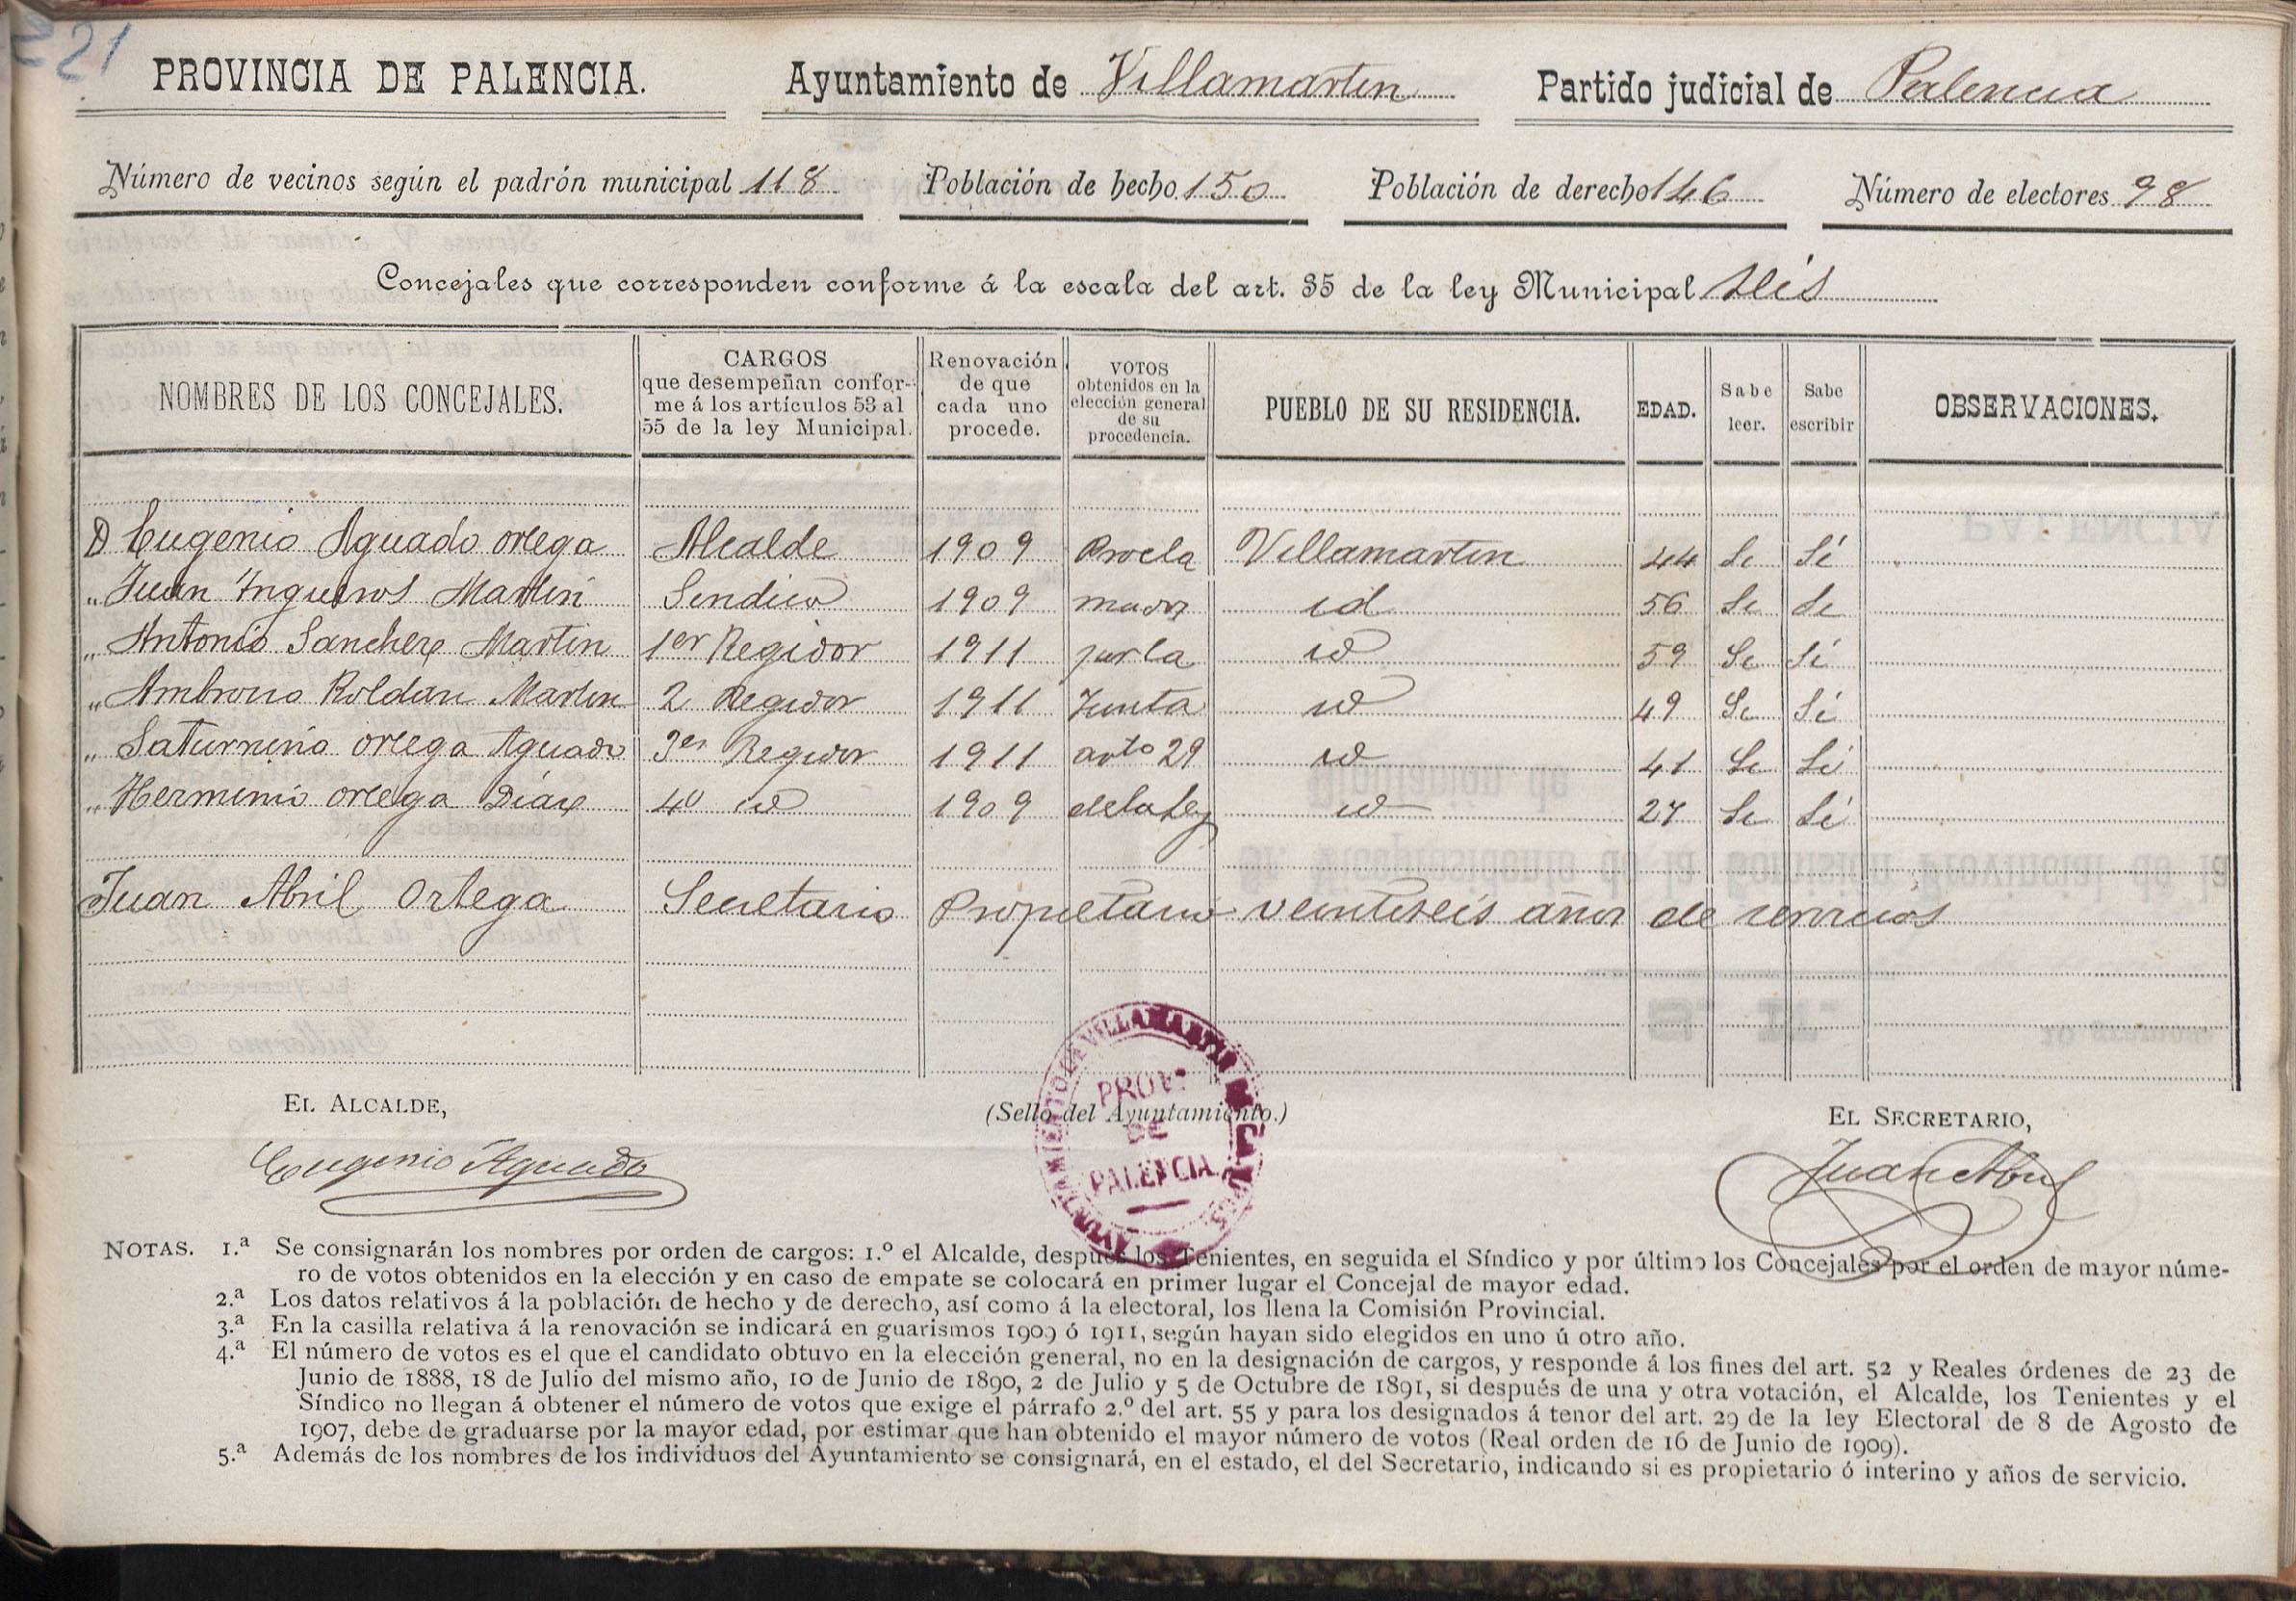 221
PROVINCIA DE PALENCIA. Ayuntamiento de Villamartin Partido judicial de Palencia
Número de vecinos según el padrón municipal 118 Población de hecho 150 Población de derecho 146 Número de electores 98
Concejales que corresponden conforme á la escala del art. 35 de la ley Municipal seis
NOMBRES DE LOS CONCEJALES. CARGOS que desempeñan conforme á los artículos 53 al 55 de la ley Municipal. Renovación de que cada uno procede. VOTOS obtenidos en la elección general de su procedencia. PUEBLO DE SU RESIDENCIA. EDAD. Sabe leer. Sabe escribir OBSERVACIONES.
D Eugenio Aguado ortega Alcalde 1909 Procla Villamartin 44 Si Sí
" Juan Martin Sindico 1909 mados id 56 Si Si
" Antonio Sanchez Martin 1er Regidor 1911 por la id 59 Si Sí
" Ambrosio Roldan Martin 2 Regidor 1911 Junta id 49 Si Sí
" Saturnino ortega Aguado 3er Regidor 1911 arto 29 id 41 Si Sí
" Herminio ortega Díaz 4º id 1909 de la Ley id 27 Si Sí
Juan Abril Ortega Secretario Propietario veintiseis años de servicios
EL ALCALDE, (Sello del Ayuntamiento.) EL SECRETARIO,
Eugenio Aguado Juan Abril
AYUNTAMIENTO DE VILLAMARTIN
PROV.
DE
PALENCIA
NOTAS. 1.ª Se consignarán los nombres por orden de cargos: 1.º el Alcalde, después los Tenientes, en seguida el Síndico y por último los Concejales por el orden de mayor núme-
ro de votos obtenidos en la elección y en caso de empate se colocará en primer lugar el Concejal de mayor edad.
2.ª Los datos relativos á la población de hecho y de derecho, así como á la electoral, los llena la Comisión Provincial.
3.ª En la casilla relativa á la renovación se indicará en guarismos 1909 ó 1911, según hayan sido elegidos en uno ú otro año.
4.ª El número de votos es el que el candidato obtuvo en la elección general, no en la designación de cargos, y responde á los fines del art. 52 y Reales órdenes de 23 de
Junio de 1888, 18 de Julio del mismo año, 10 de Junio de 1890, 2 de Julio y 5 de Octubre de 1891, si después de una y otra votación, el Alcalde, los Tenientes y el
Síndico no llegan á obtener el número de votos que exige el párrafo 2.º del art. 55 y para los designados á tenor del art. 29 de la ley Electoral de 8 de Agosto de
1907, debe de graduarse por la mayor edad, por estimar que han obtenido el mayor número de votos (Real orden de 16 de Junio de 1909).
5.ª Además de los nombres de los individuos del Ayuntamiento se consignará, en el estado, el del Secretario, indicando si es propietario ó interino y años de servicio.